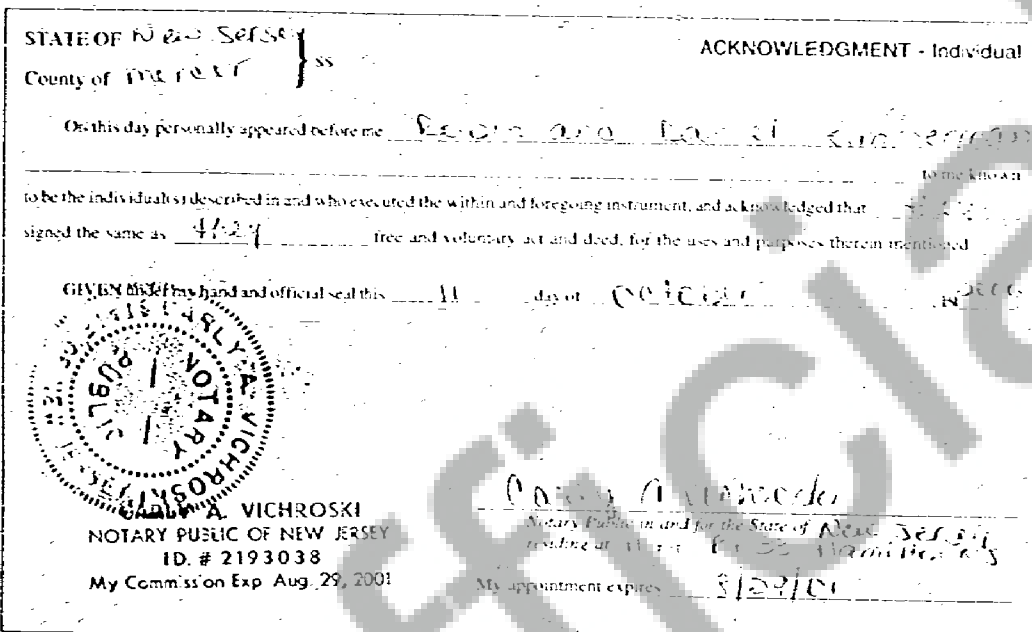 STATE OF New Jersey } ss
ACKNOWLEDGMENT - Individual
County of Mercer
On this day personally appeared before me and
to me known
to be the individual(s) described in and who executed the within and foregoing instrument, and acknowledged that
signed the same as they free and voluntary act and deed, for the uses and purposes therein mentioned
GIVEN under my hand and official seal this 11 day of
CARLY A. VICHROSKI
NOTARY
PUBLIC
NEW JERSEY
CARLY A. VICHROSKI
NOTARY PUBLIC OF NEW JERSEY
ID. # 2193038
My Commission Exp Aug. 29, 2001
Notary Public in and for the State of New Jersey
residing at Hamilton NJ
My appointment expires 8/29/01